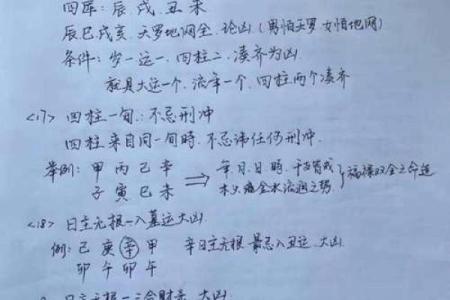 四库:辰、戌、丑、未
辰巳戌亥,天罗地网全,论凶(男怕天罗女怕地网)
条件:岁一运一,四柱二,凑齐为凶.
就具大运一个,流年一个,四柱两个凑齐
<17> 四柱一旬:不忌刑冲
四柱来自同一旬时,不忌讳任何刑冲.
举例:甲 丙 己 辛 ⇒ 年月、日时、干支皆成 } 福禄双全之命造
子 寅 巳 未 木火 金水流通之势
<18> 日主无根一入墓运大凶
例:己 庚 辛 甲 辛日主无根最忌入丑运,大凶
卯 午 卯 午
日主无根一三合财来,大凶